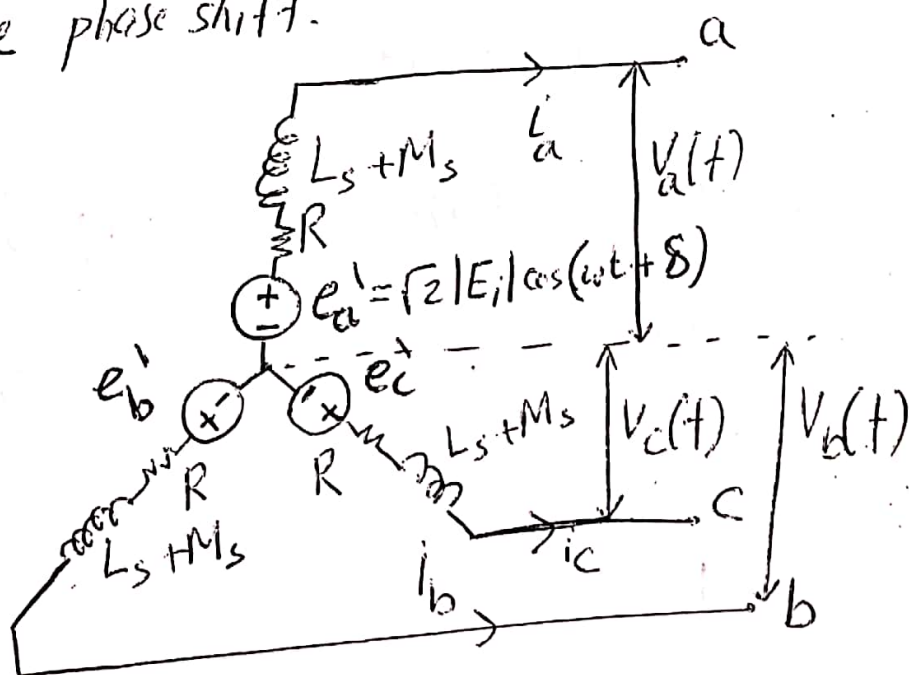 e phase shift.
a
i_a
L_s + M_s
V_a(t)
R
+
-
e_a' = √2 |E_i| cos(ωt + δ)
e_b'
e_c'
+ -
- +
L_s + M_s
V_c(t)
V_b(t)
R
R
L_s + M_s
c
i_c
i_b
b